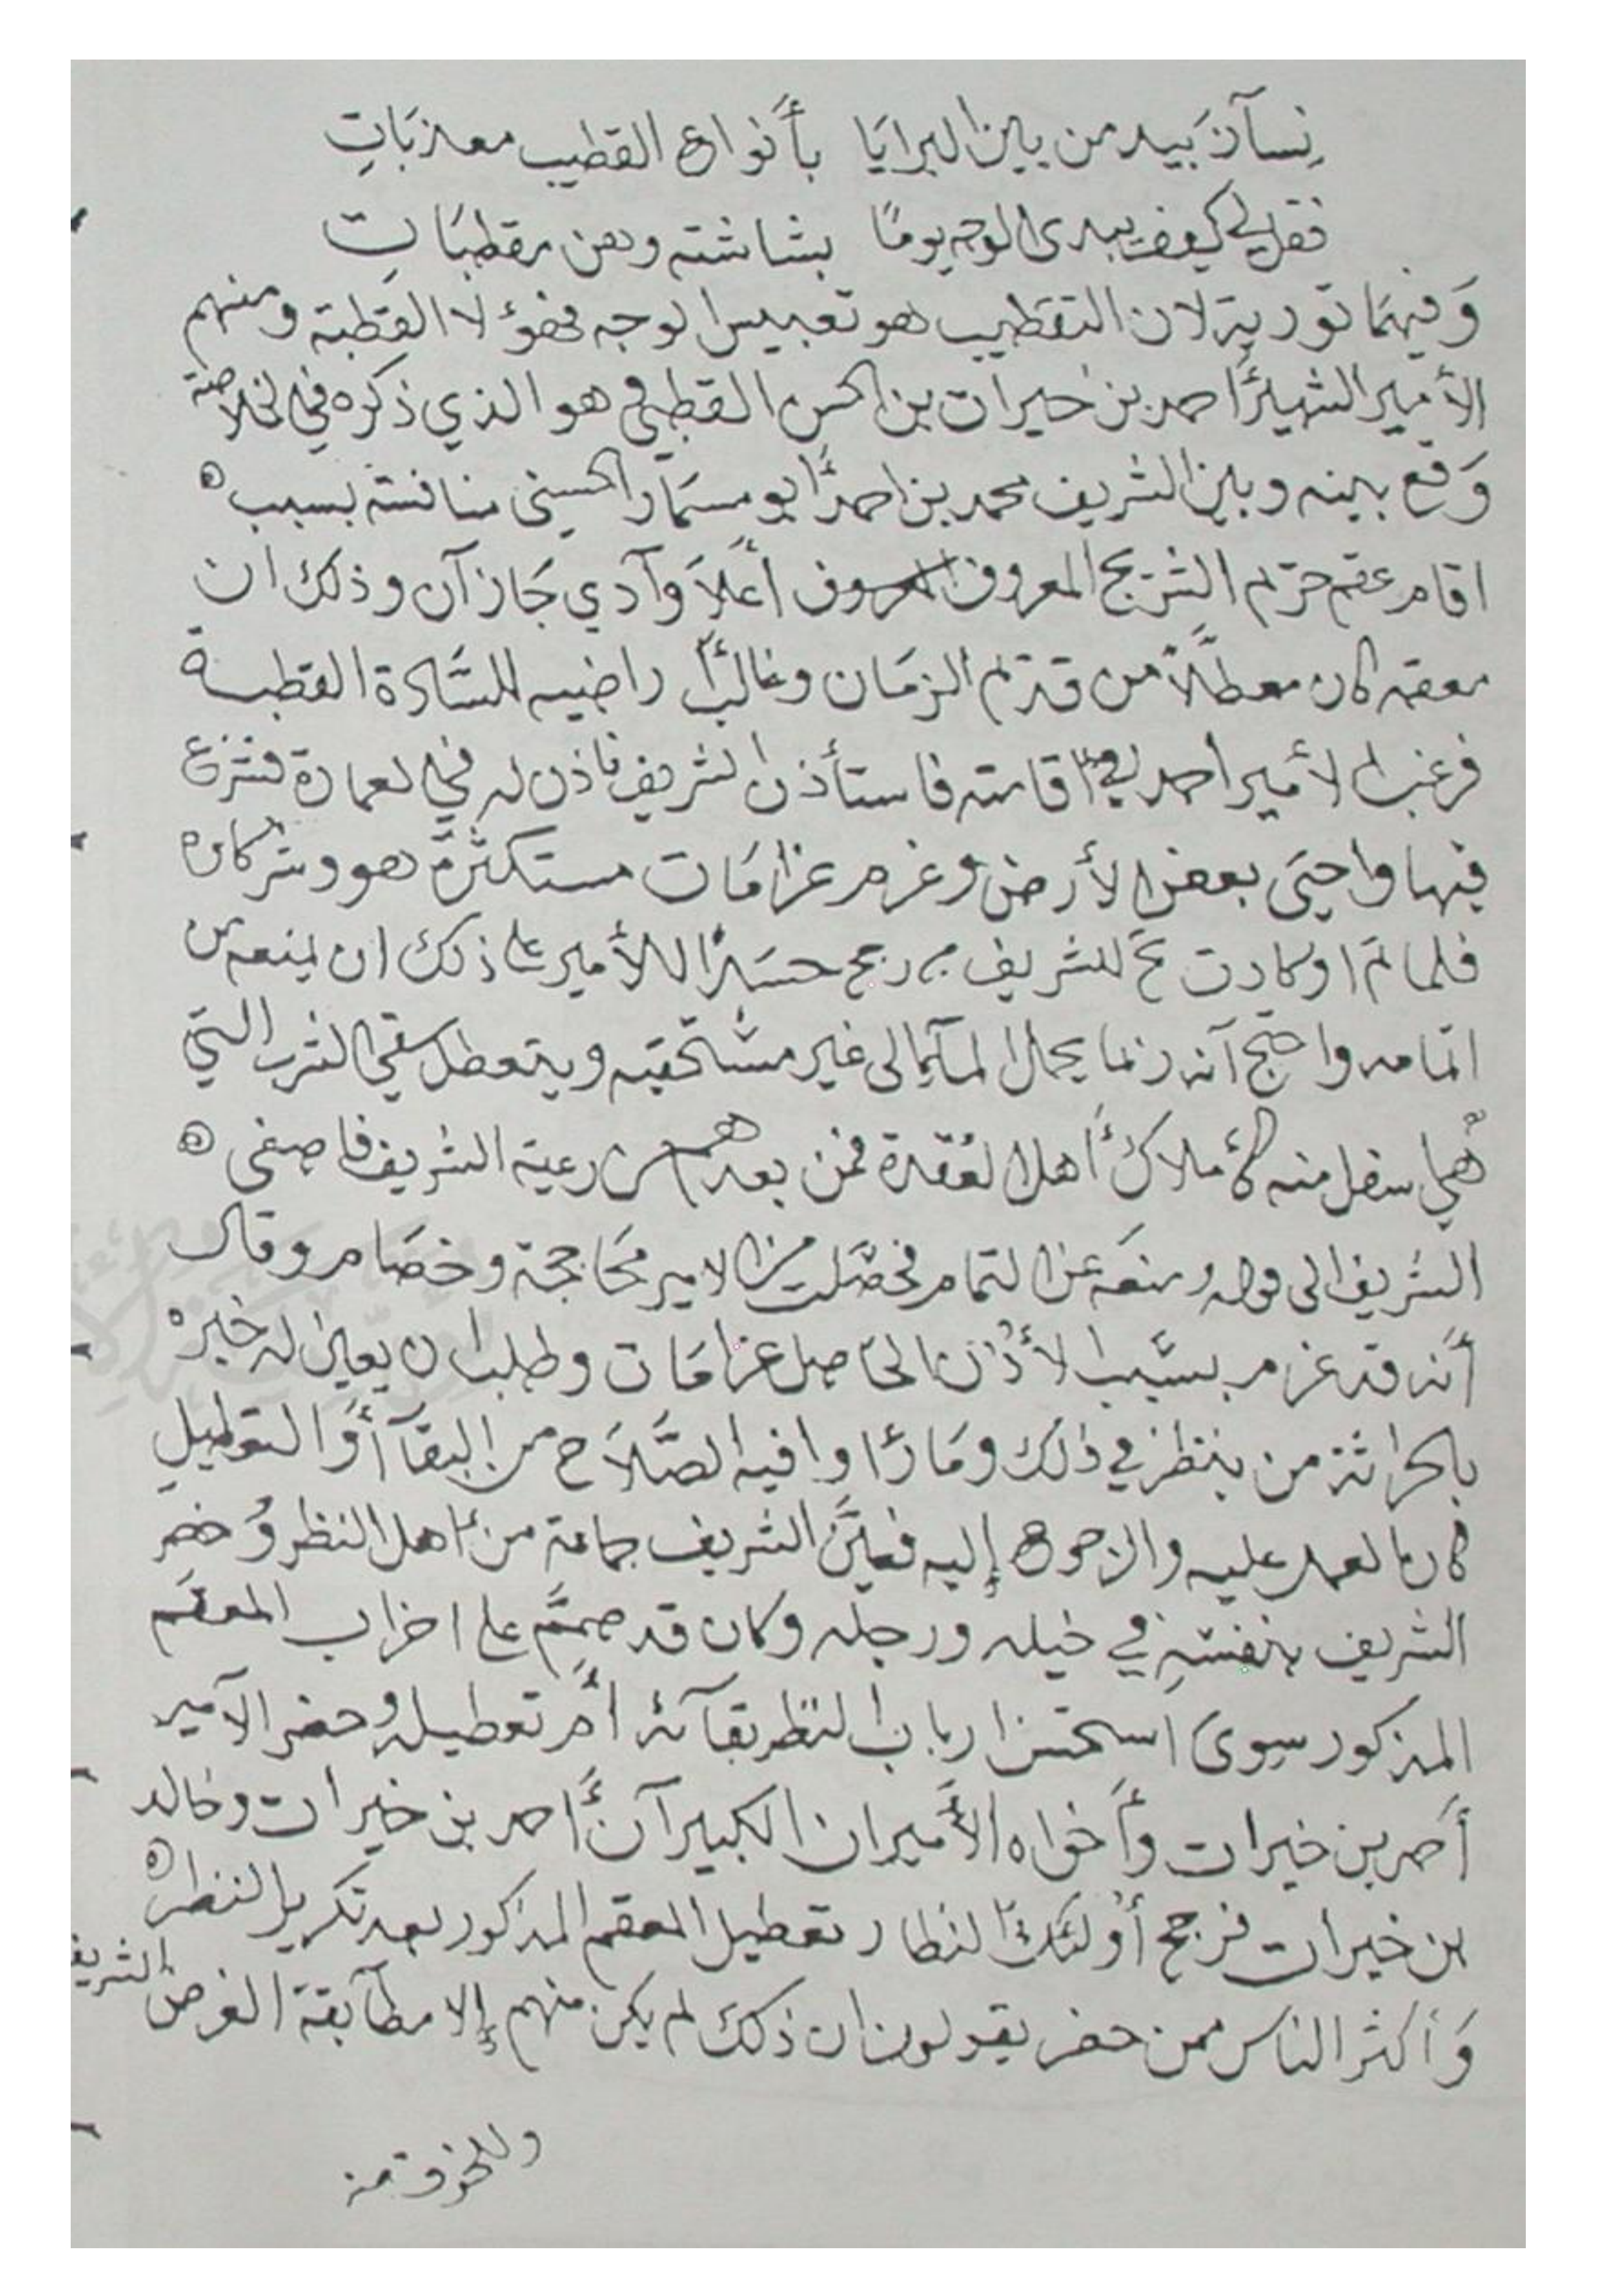 نسآ زبيد من بين البرايا بأنواع القطيب معذبات
فقل لي كيف يبدى الوجه يومًا بشاشته وهن مقطبات
وَفيهمَا تورية لان التقطيب هو تعبيس الوجه فهؤلا القطبة ومنهم
الأمير الشهير أحمد بن خيرات بن الحسن القطبي هو الذي ذكره في الخلاصة
وَقع بينه وبين الشريف محمد بن احمد أبو مسمَار الحسني منافسة بسبب ه
اقام عقم المعروف المعروف أعلَا وآدي جَازآن وذلك ان
معقم كان معطلًا من قديم الزمَان وغالب أراضيه للسَّادة القطبة
فرغب الأمير احمد في اقامته فاستأذن الشريف فاذن له في العمارة فشرع
فيها واحيَى بعض الأرض وغرم غرامَات مستكثرة هو وشركاه
فلما تم اوكاد للشريف حسدًا للأمير على ذلك ان يمنعه من
اتمامه واحتج آنه ربما يحمل المآ الى غير مستحقيه ويتعطل سقي الشرب التي
هي سفل منه كأملاك أهل العقدة فمن بعدهم من رعية الشريف فاصغى ه
الشريف الى قوله ومنعَه عن التمام فحصَلت من الامير محَاججة وخصَام وقال
أنه قد غرم بسبب الأذن الحَاصل غرامَات وطلب ان يعين له خبره
بالحراثة من ينظر في ذلك ومَا رأوا فيه الصَّلَاح من البقآ أو التعطيل
كان العمل عليه والرجوع إليه فعيَّن الشريف جماعة من أهل النظر وُحضر
الشريف بنفسه في خيله ورجله وكان قد صممَّ على اخراب المعقَم
المذكور سوىَ استحسن ارباب النظر بقآئه أم تعطيله وحضر الآمير
أحمد بن خيرات وأخواه الأميران الكبيرآن أحمد بن خيرات وخالد
بن خيرات فرجح أولئك النظار تعطيل المعقم المذكور بعد تكرير النظر ه
وَأكثر الناس ممن حضر يقولون ان ذلك لم يكن منهم إلا مطآبقة الغرض الشريف